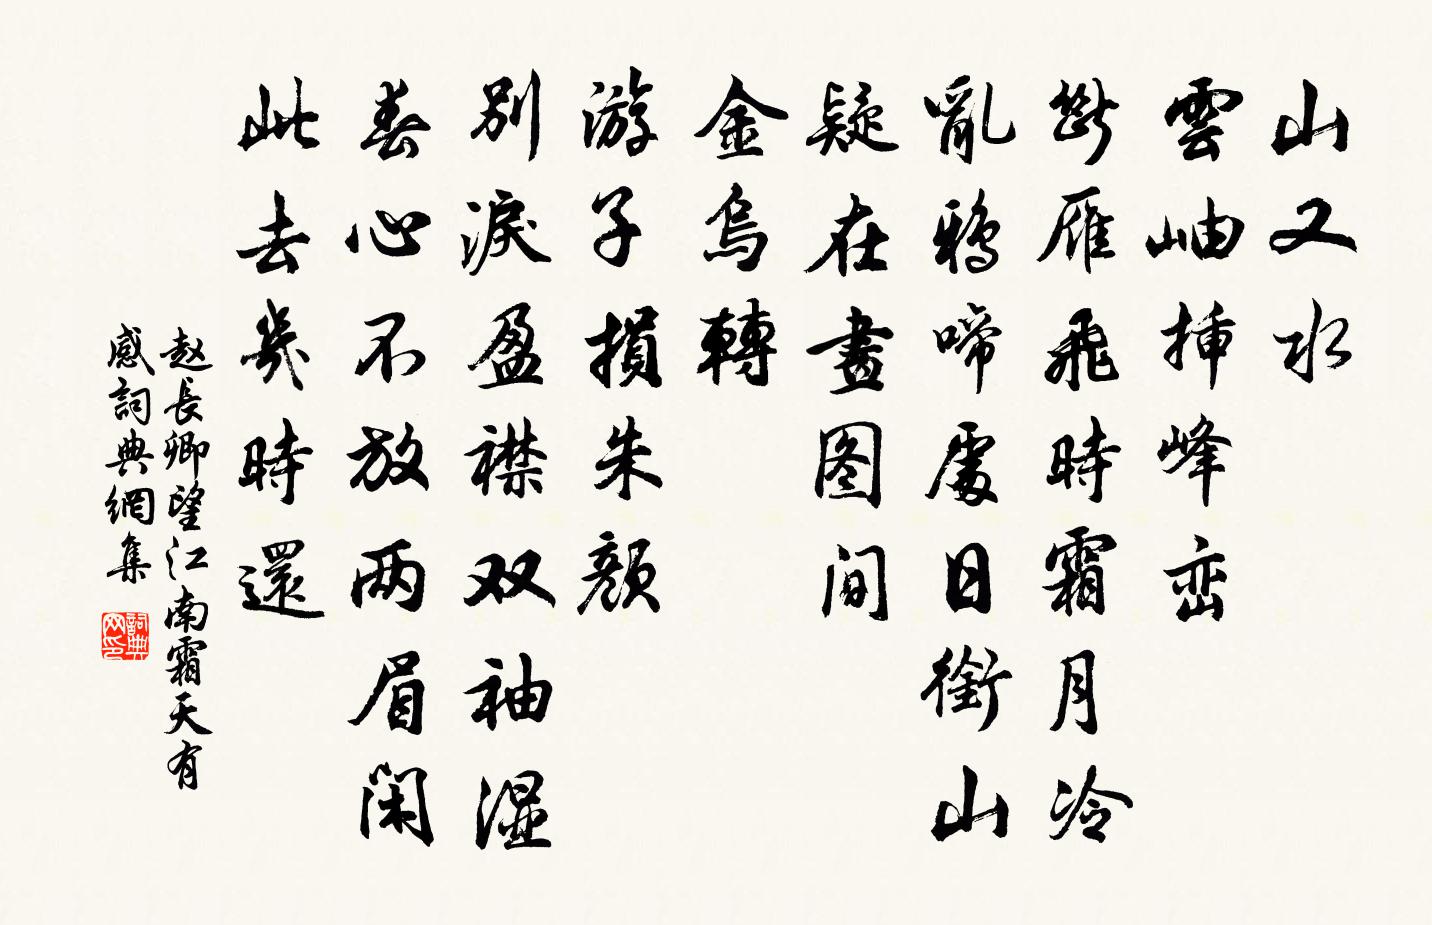 山又水
雲岫插峰巒
斷雁飛時霜月冷
亂鴉啼處日銜山
疑在畫图間
金烏轉
游子損朱顏
別淚盈襟双袖湿
春心不放两眉閑
此去幾時還
赵長卿望江南霜天有
感詞典網集
詞典
网印